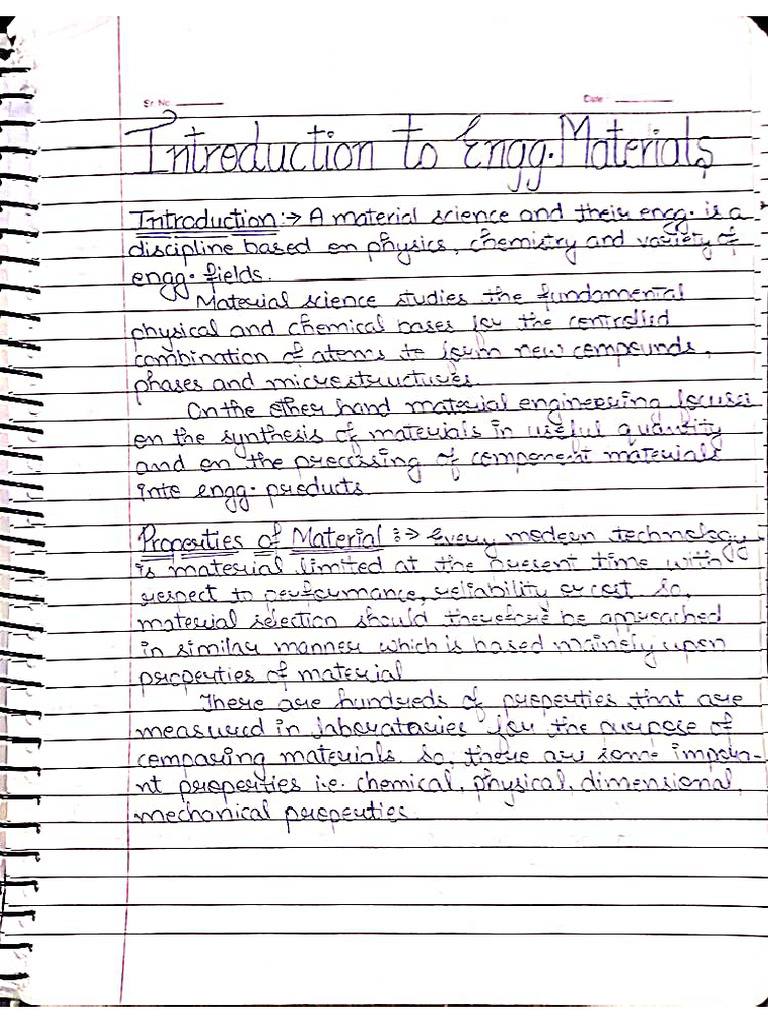 Sr. No.
Date :
Introduction to Engg. Materials
Introduction :→ A material science and their engg. is a
discipline based on physics, chemistry and variety of
engg. fields.
Material science studies the fundamental
physical and chemical bases for the controlled
combination of atoms to form new compounds,
phases and microstructures.
On the other hand material engineering focuses
on the synthesis of materials in useful quantity
and on the processing of component materials
into engg. products.
Properties of Material :→ Every modern technology
is material limited at the present time with
respect to performance, reliability or cost. So,
material selection should therefore be approached
in similar manner which is based mainely upon
properties of material
There are hundreds of properties that are
measured in laboratories for the purpose of
comparing materials. So, there are some importa-
nt properties i.e. chemical, physical, dimensional,
mechanical properties.